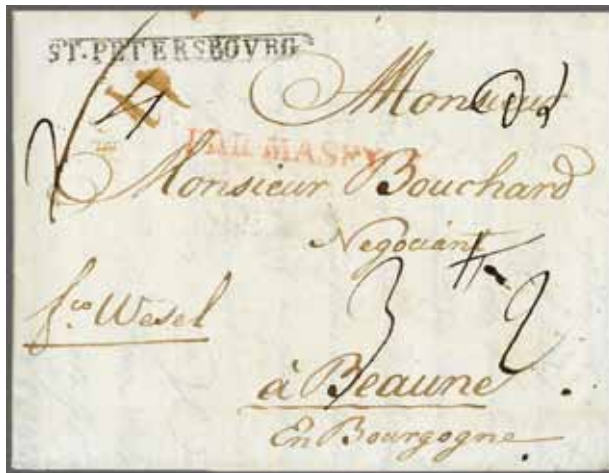 ST.PETERSBOVRG
4
Monsieur
PAR MASEYK
Monsieur Bouchard
Negociant
fco Wesel
3 2
à Beaune
En Bourgogne